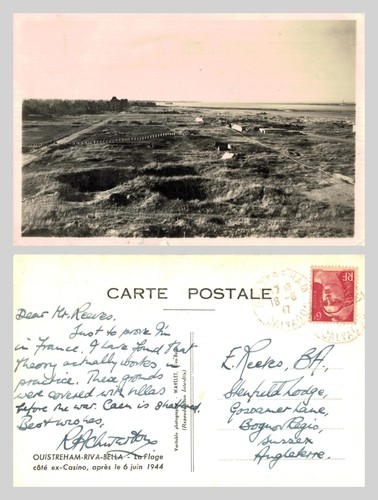 CARTE POSTALE
Dear Mr. Reeves,
Just to prove I'm
in France. I have found that
theory actually works in
practice. These grounds
were covered with villas
before the war. Caen is shattered.
Best wishes,
OUISTREHAM-RIVA-BELLA - La Plage
côté ex-Casino, après le 6 juin 1944
Véritable photographie
(Reproduction Interdite)
RF
E. Reeves, BA,
Glenfield Lodge,
Gossamer Lane,
Bognor Regis,
Sussex
Angleterre.